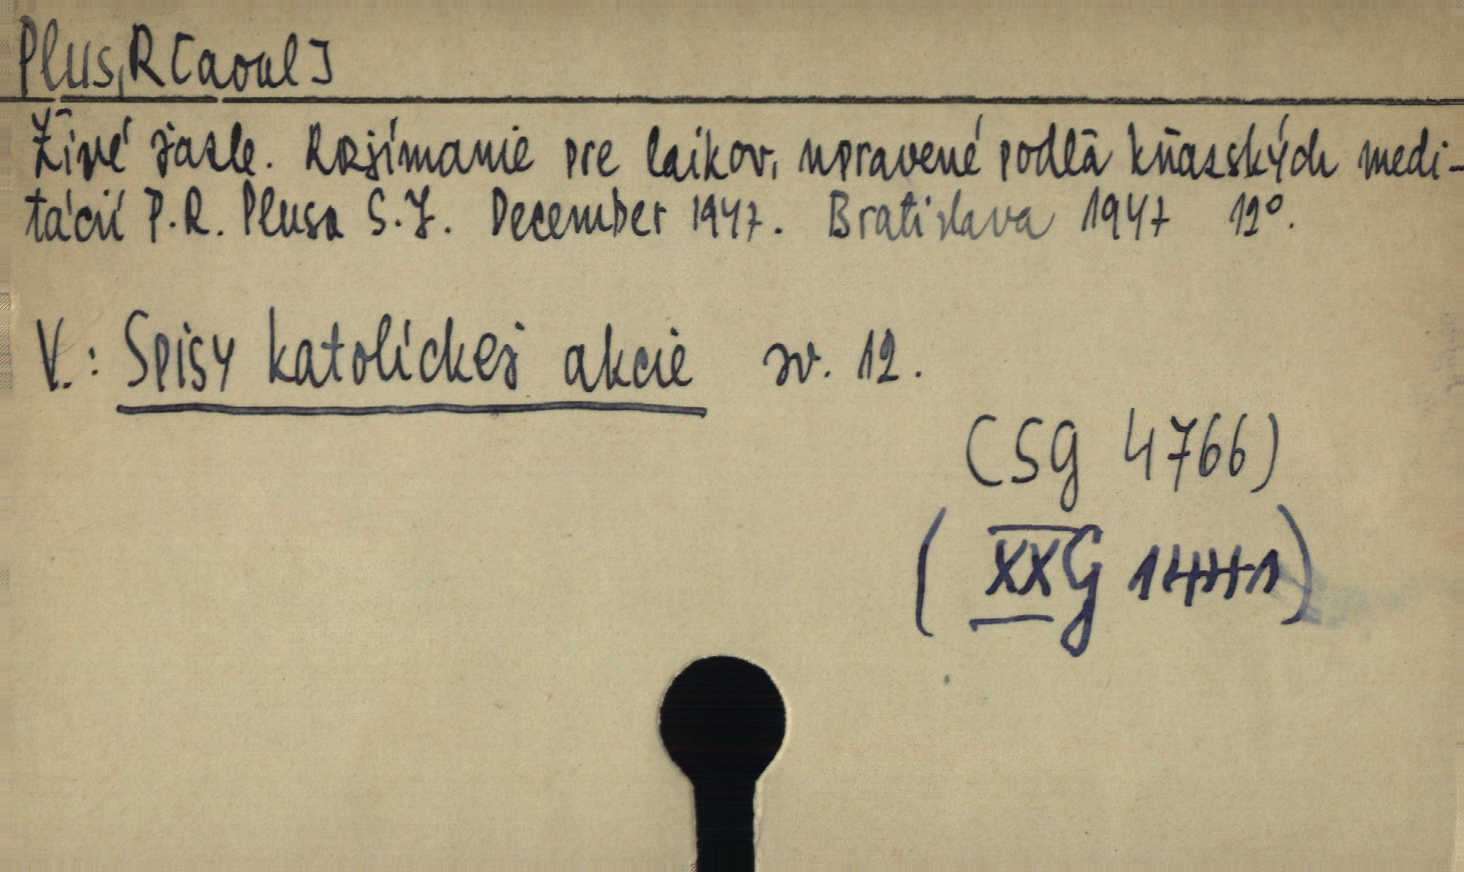 Plus, R[aoul]
Živé jasle. Rozjímanie pre laikov, upravené podľa kňazských medi-
tácií P. R. Plusa S. J. December 1947. Bratislava 1947 12°.
V.: Spisy katolíckej akcie sv. 12.
(SG 4766)
(XX G)